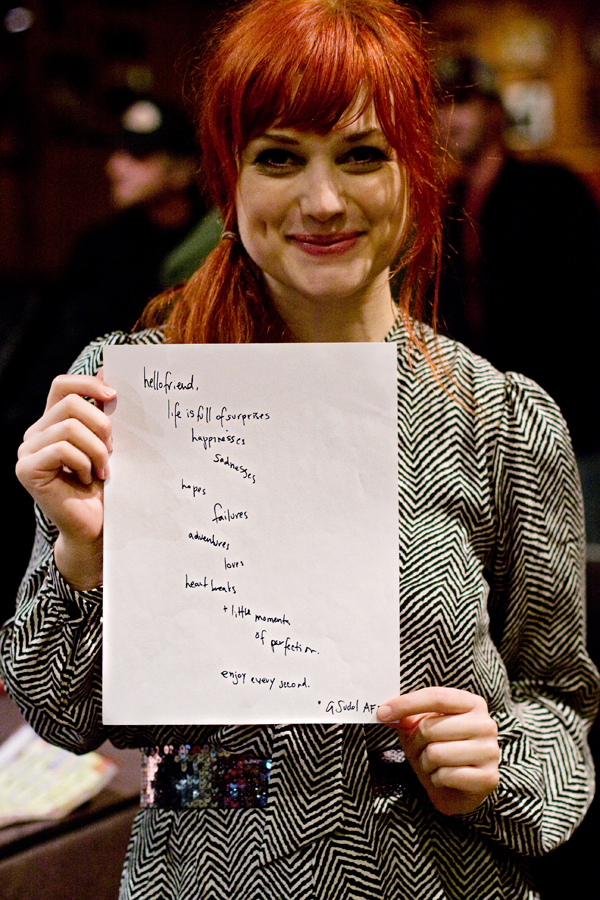 hello friend,
life is full of surprises
happinesses
sadnesses
hopes
failures
adventures,
loves
heartbreaks
+ little moments
of perfection.
enjoy every second.
* A Sudol AF